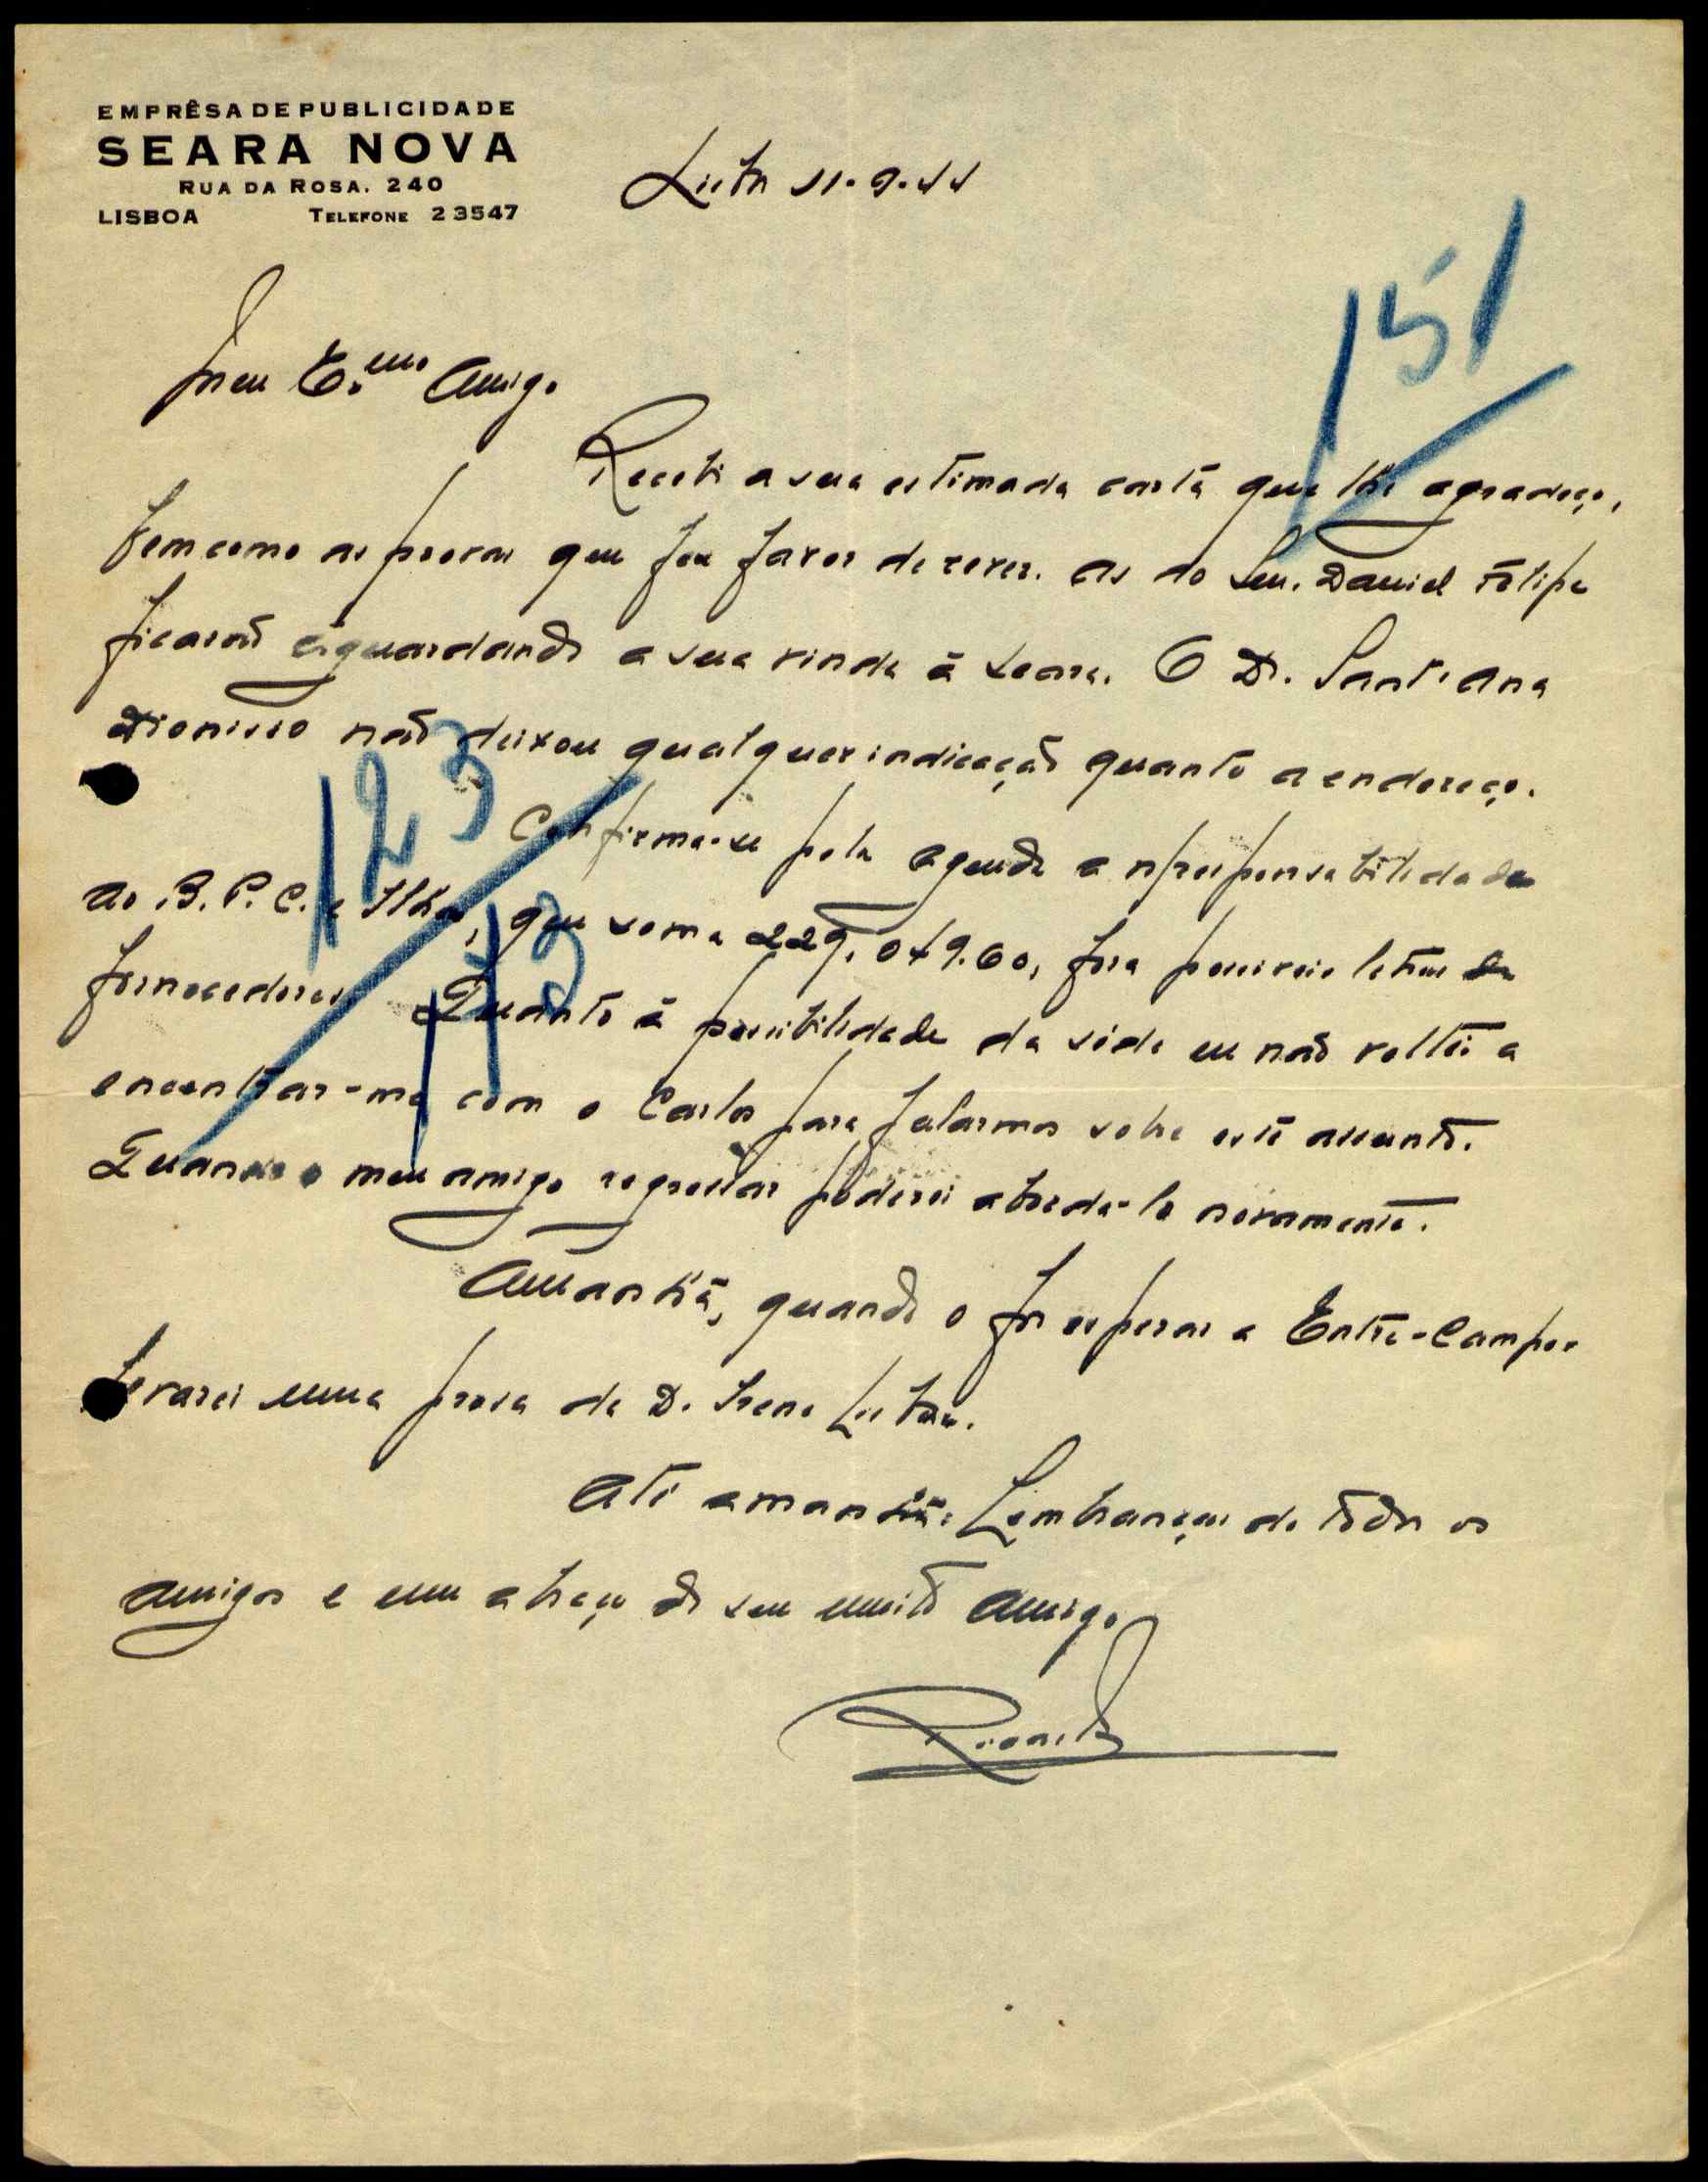 EMPRÊSA DE PUBLICIDADE
SEARA NOVA
RUA DA ROSA. 240
LISBOA TELEFONE 23547
Lisboa 11-9-44
151
Meu Ex.mo Amigo
Recebi a sua estimada carta que lhe agradeço,
bem como as provas que fez favor de rever. As do Snr. Daniel Filipe
ficarão aguardando a sua vinda à Seara. O Dr. Sant'Ana
Dionisio não deixou qualquer indicação quanto a endereço.
123
Confirma-se pela agenda a n/responsabilidade
ao B. P. C. e Ilhas, que soma 229.049.60, fora possiveis letras de
fornecedores. Quanto à possibilidade da séde eu não voltei a
encontrar-me com o Carlos para falarmos sobre este assunto.
Quando o meu amigo regressar poderei aborda-lo novamente.
Amanhã, quando o fôr esperar a Entre-Campos
levarei uma prova da D. Irene Lisboa.
Até amanhã. Lembranças de todos os
amigos e um abraço do seu muito amigo